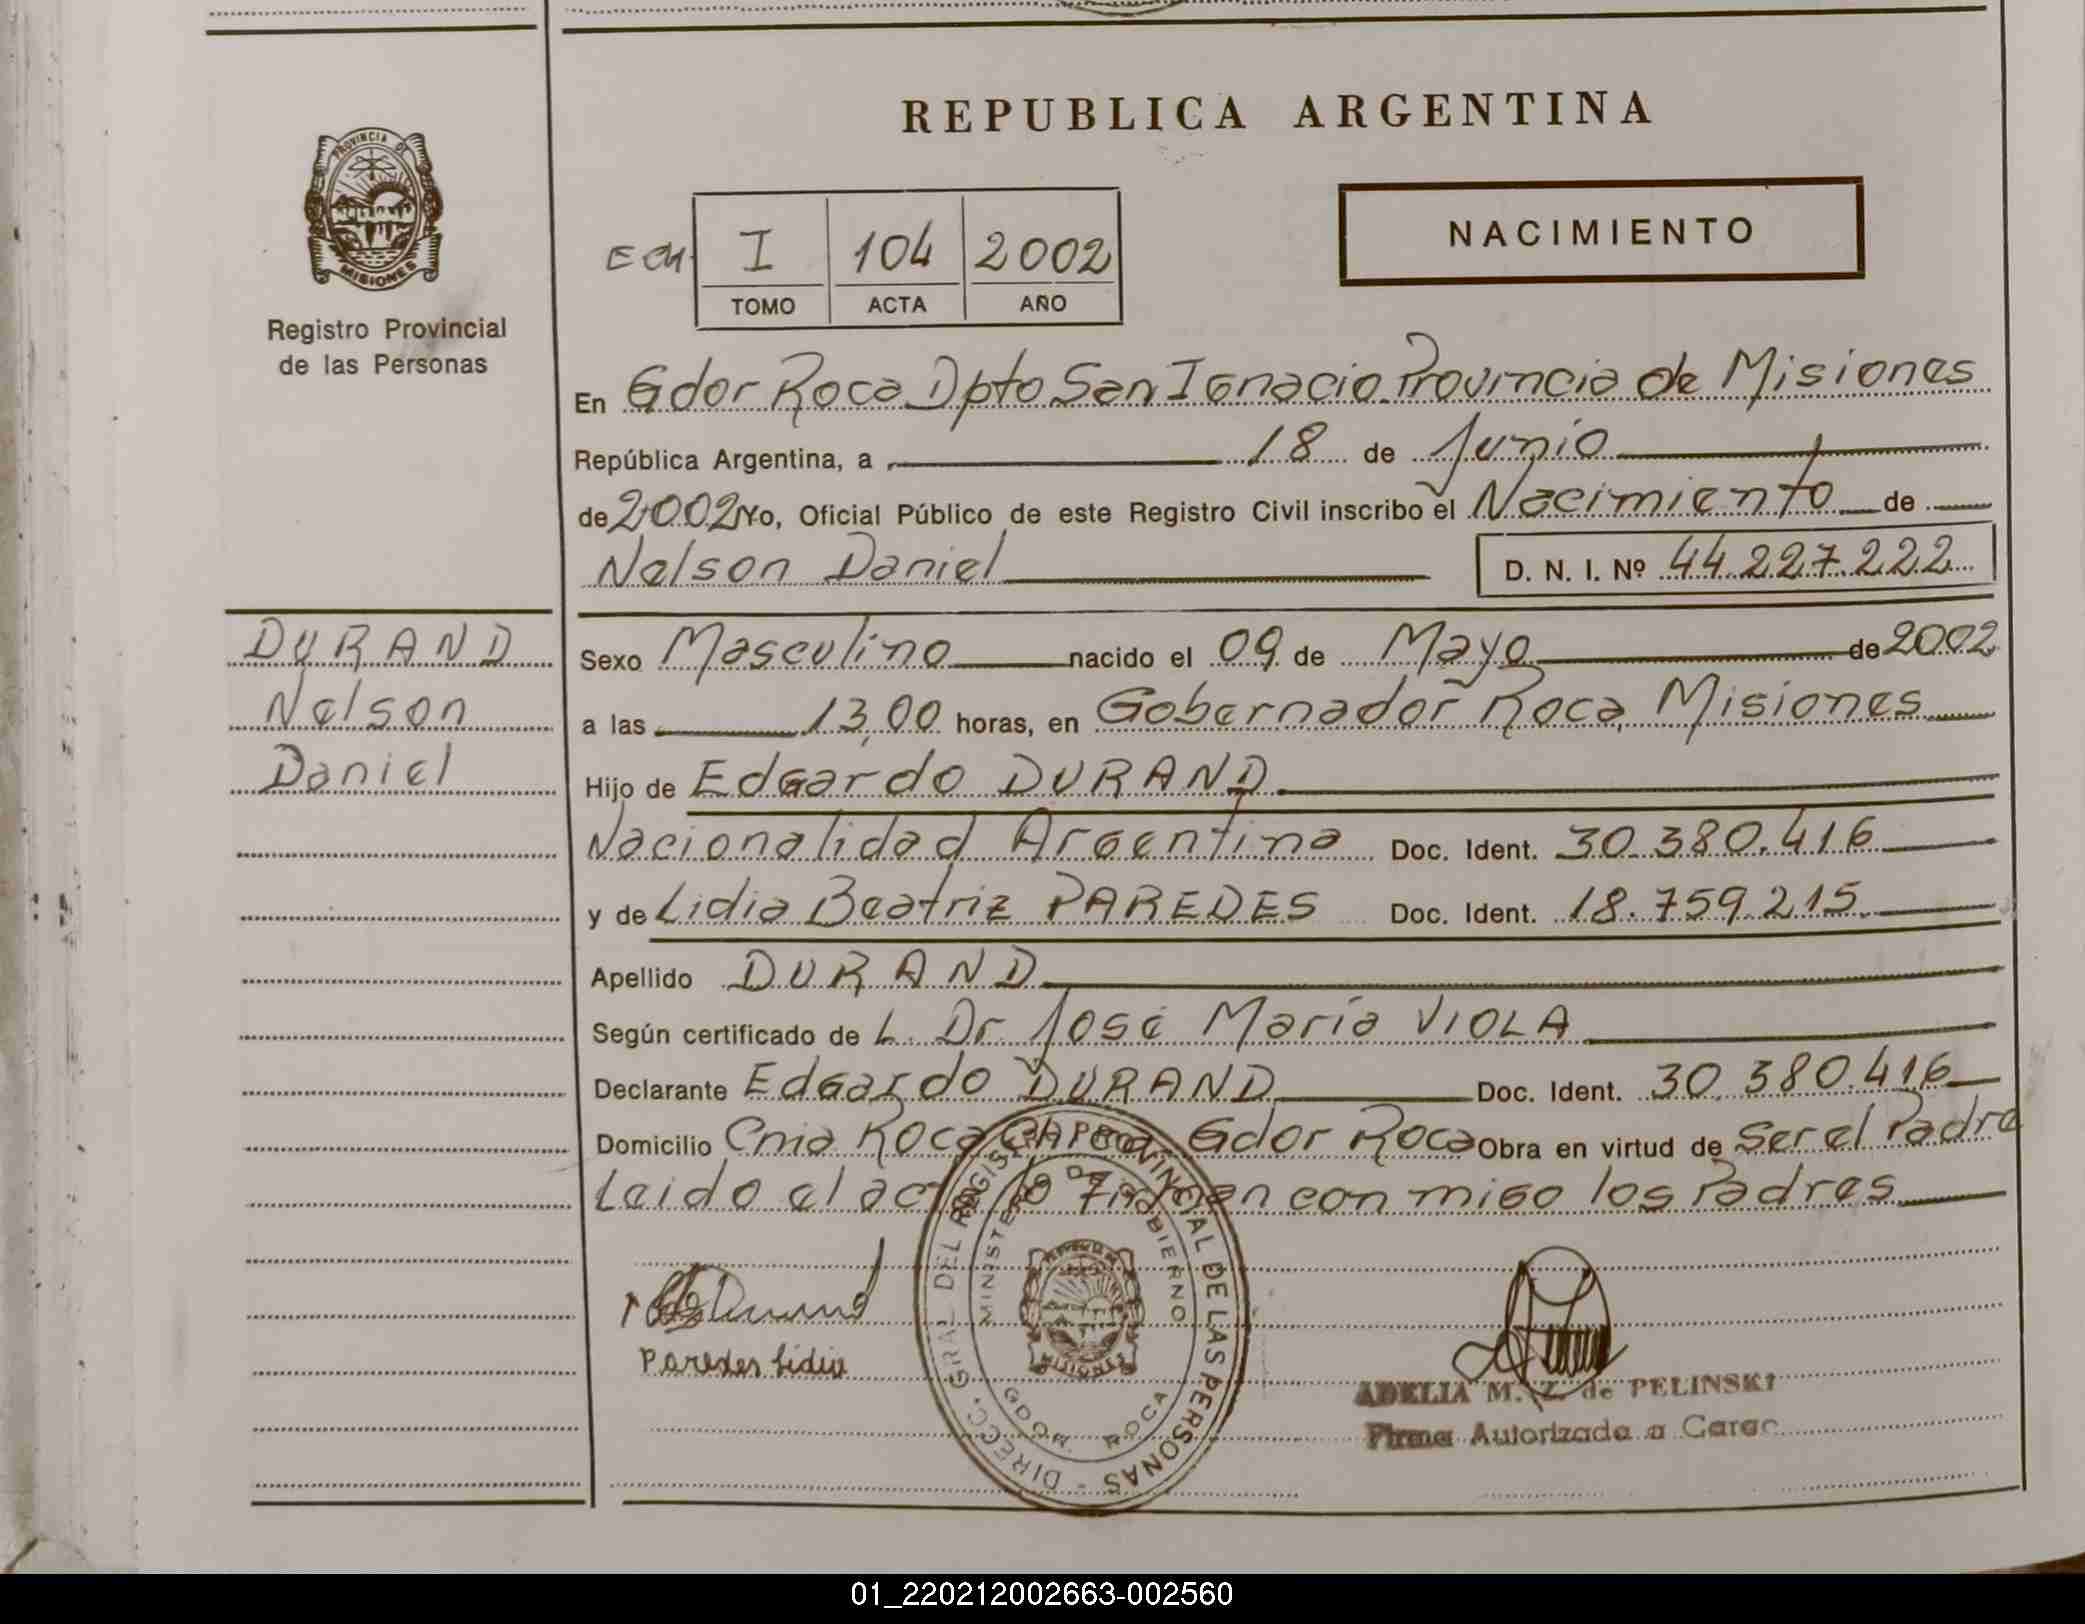 REPUBLICA ARGENTINA
PROVINCIA DE
MISIONES
Registro Provincial
de las Personas
NACIMIENTO
I 104 2002
TOMO ACTA AÑO
En Gdor Roca Dpto San Ignacio Provincia de Misiones
República Argentina, a 18 de Junio
de 2002 Yo, Oficial Público de este Registro Civil inscribo el Nacimiento de
Nelson Daniel D. N. I. Nº 44.227.222
DURAND
Nelson
Daniel
Sexo Masculino nacido el 09 de Mayo de 2002
a las 13,00 horas, en Gobernador Roca, Misiones
Hijo de Edgardo DURAND
Nacionalidad Argentina Doc. Ident. 30.380.416
y de Lidia Beatriz PAREDES Doc. Ident. 18.759.215
Apellido DURAND
Según certificado de L. Dr José María VIOLA
Declarante Edgardo DURAND Doc. Ident. 30.380.416
Domicilio Cnia Roca Gdor Roca Obra en virtud de Ser el Padre
Leido el lo Firman con migo los Padres
Durand
Paredes Lidia
DIRECC. GRAL. DEL REGISTRO PROVINCIAL DE LAS PERSONAS
MINISTERIO DE GOBIERNO
MISIONES
GDOR. ROCA
ADELIA M. Z. de PELINSKI
Firma Autorizada a Cargo
01_220212002663-002560